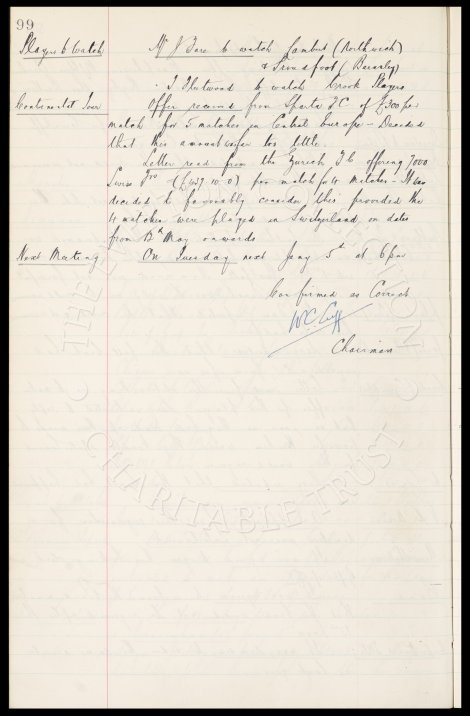 99
Players to Watch Mr J Bare to watch Lambert (Northwich)
& Proudfoot (Barnsley)
" J Fleetwood to watch Crook Players
Continental Tour Offer received from Sparta F.C of £300 per
match for 5 matches in Central Europe – Decided
that this amount was far too little.
Letter read from the Zurich F.C offering 7000
Swiss Frs (£ 10 0) per match for 4 matches. It was
decided to favorably consider this provided the
4 matches were played in Switzerland on dates
from 12th May onwards
Next Meeting On Tuesday next Jany 5th at 6pm
Confirmed as Correct
W.C. Cuff
Chairman
CHARITABLE TRUST